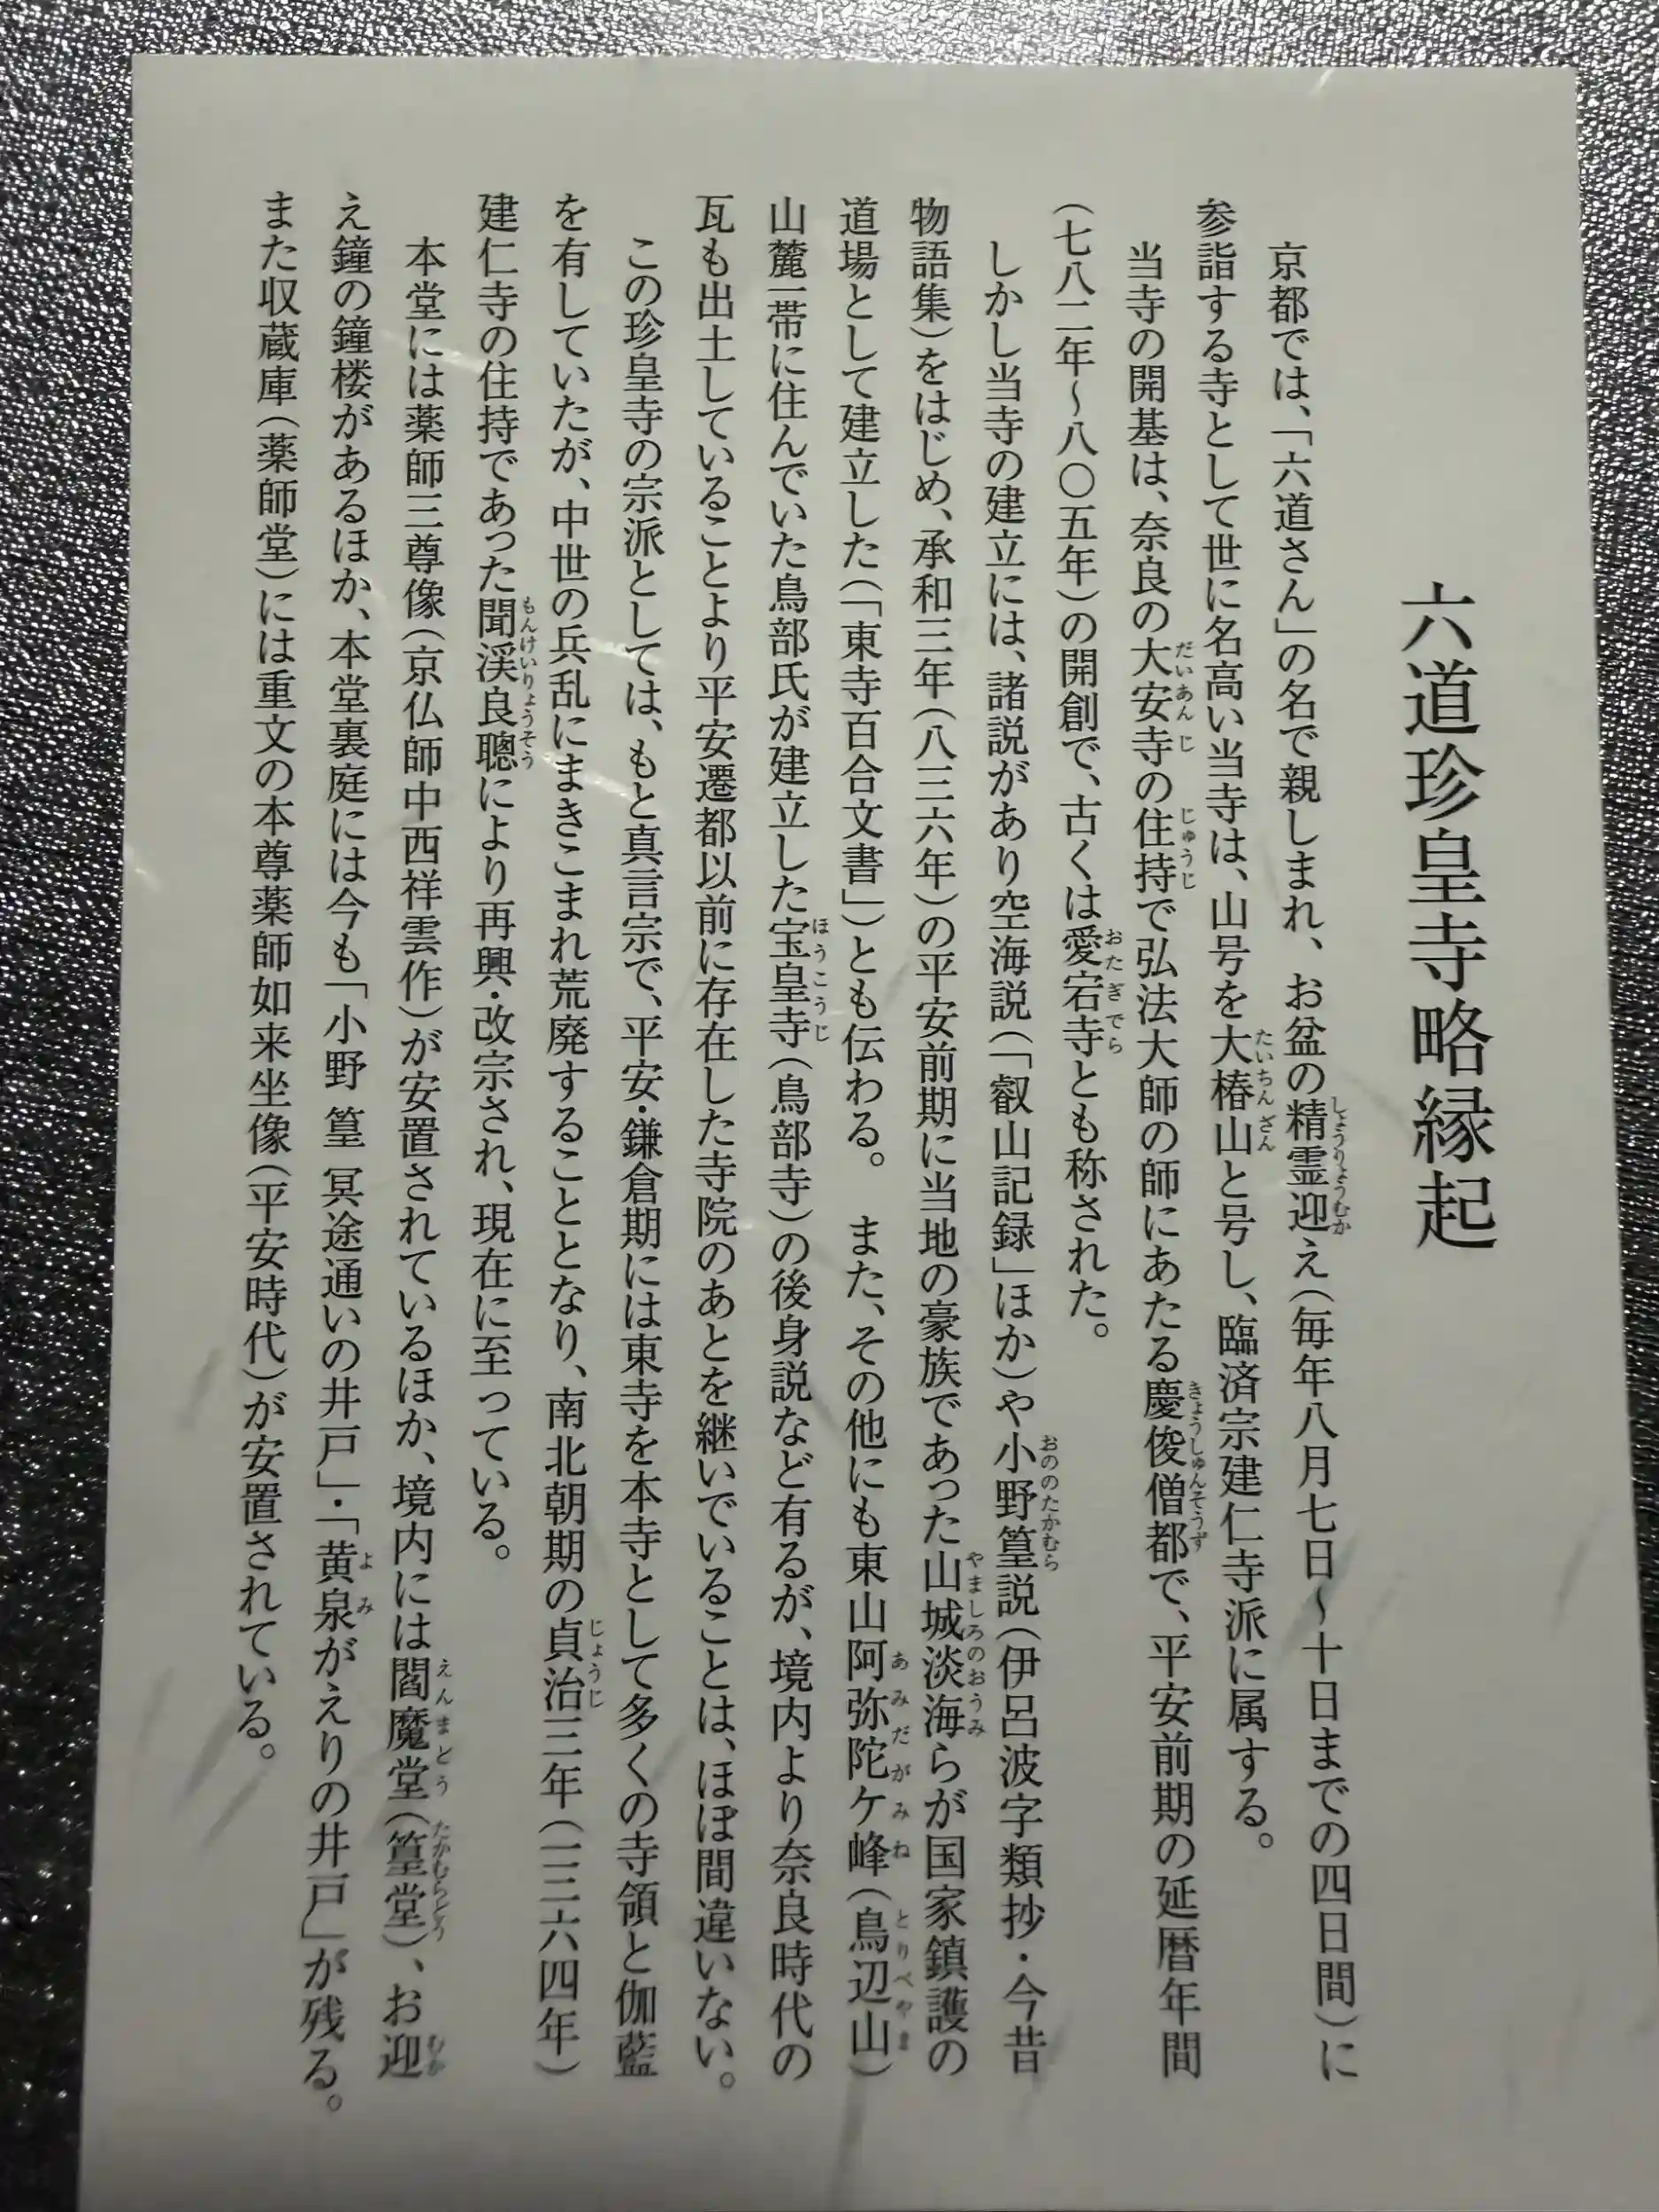 六道珍皇寺略縁起
京都では、「六道さん」の名で親しまれ、お盆の精霊迎え(毎年八月七日〜十日までの四日間)に
参詣する寺として世に名高い当寺は、山号を大椿山と号し、臨済宗建仁寺派に属する。
当寺の開基は、奈良の大安寺の住持で弘法大師の師にあたる慶俊僧都で、平安前期の延暦年間
(七八二年〜八〇五年)の開創で、古くは愛宕寺とも称された。
しかし当寺の建立には、諸説があり空海説(「叡山記録」ほか)や小野篁説(伊呂波字類抄・今昔
物語集)をはじめ、承和三年(八三六年)の平安前期に当地の豪族であった山城淡海らが国家鎮護の
道場として建立した(「東寺百合文書」)とも伝わる。 また、その他にも東山阿弥陀ケ峰(鳥辺山)
山麓一帯に住んでいた鳥部氏が建立した宝皇寺(鳥部寺)の後身説など有るが、境内より奈良時代の
瓦も出土していることより平安遷都以前に存在した寺院のあとを継いでいることは、ほぼ間違いない。
この珍皇寺の宗派としては、もと真言宗で、平安・鎌倉期には東寺を本寺として多くの寺領と伽藍
を有していたが、中世の兵乱にまきこまれ荒廃することとなり、南北朝期の貞治三年(一三六四年)
建仁寺の住持であった聞渓良聰により再興・改宗され、現在に至っている。
本堂には薬師三尊像(京仏師中西祥雲作)が安置されているほか、境内には閻魔堂(篁堂)、お迎
え鐘の鐘楼があるほか、本堂裏庭には今も「小野 篁 冥途通いの井戸」・「黄泉がえりの井戸」が残る。
また収蔵庫(薬師堂)には重文の本尊薬師如来坐像(平安時代)が安置されている。